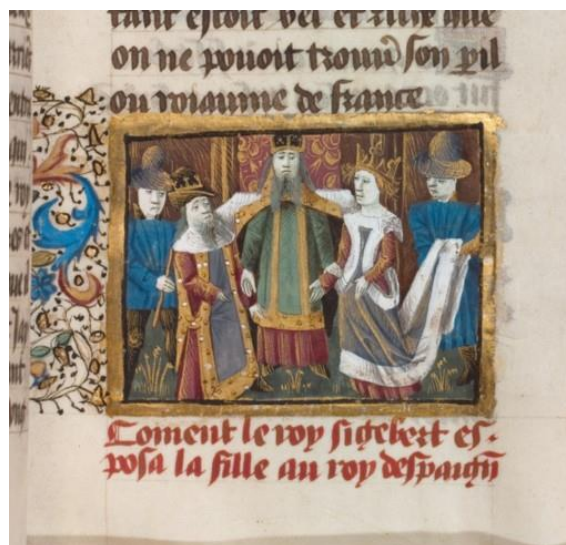 tant estoit bel et riche que
on ne pouoit trouu᾽ son ꝑil
ou roiaume de france
Coment le roy sigebert es-
posa la fille au roy despaign